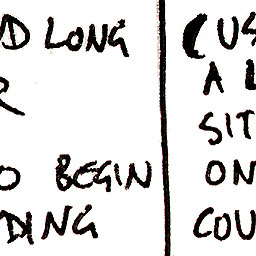 ND LONG
R
O BEGIN
DING
(US
A L
SIT
ON
COU